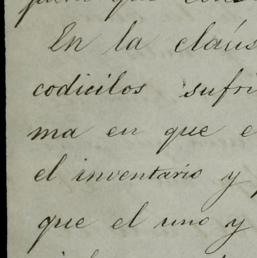 para que
En la cláus
codicilos sufri
ma en que e
el inventario y
que el uno y